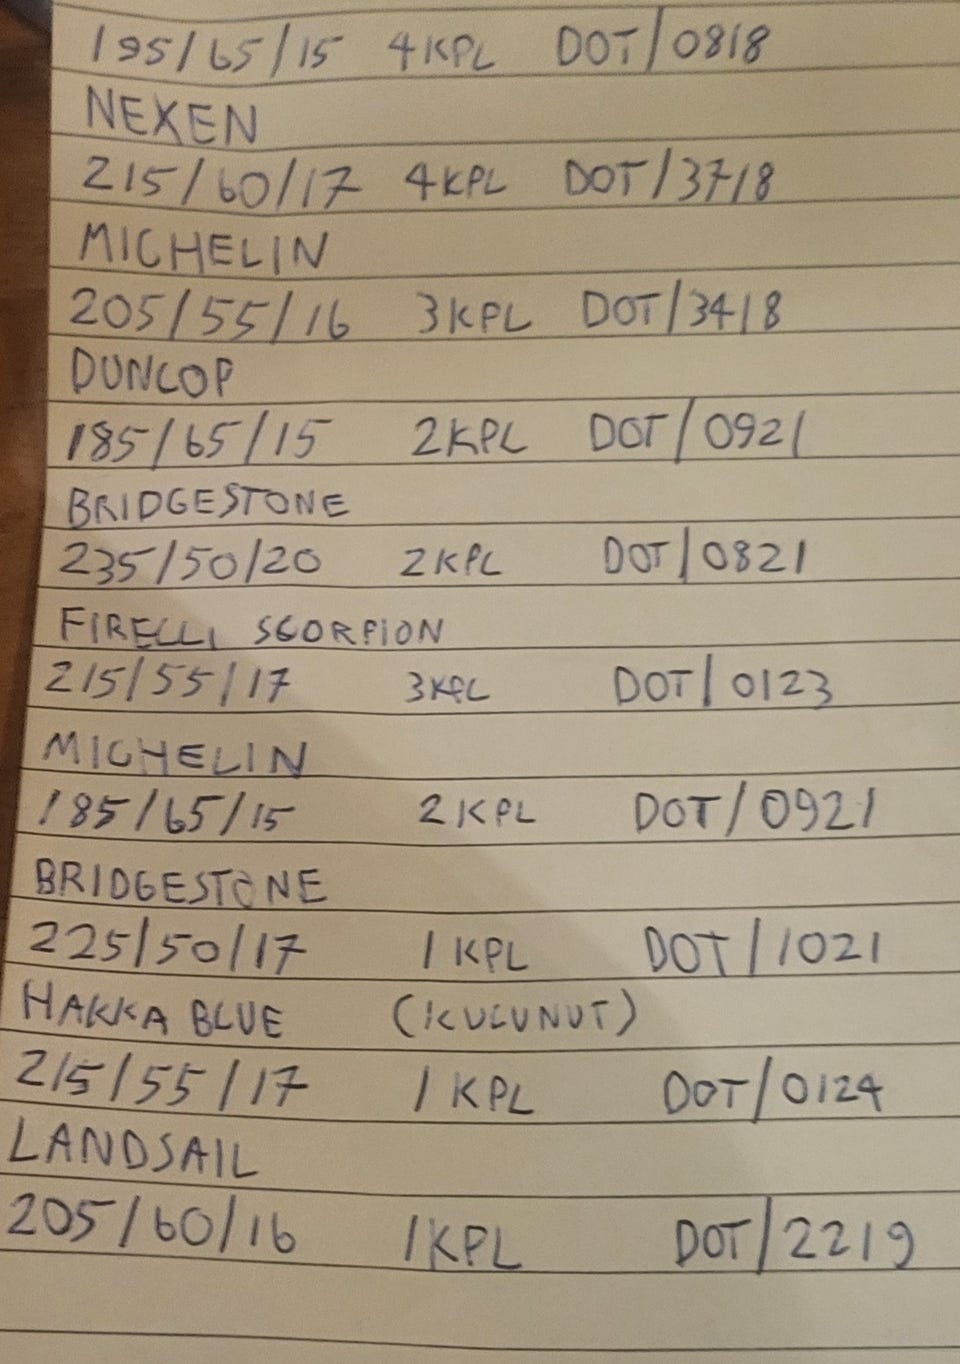 195/65/15 4KPL DOT/0818
NEXEN
215/60/17 4KPL DOT/3718
MICHELIN
205/55/16 3KPL DOT/3418
DUNLOP
185/65/15 2KPL DOT/0921
BRIDGESTONE
235/50/20 2KPL DOT/0821
PIRELLI SCORPION
215/55/17 3KPL DOT/0123
MICHELIN
185/65/15 2KPL DOT/0921
BRIDGESTONE
225/50/17 1KPL DOT/1021
HAKKA BLUE (KULUNUT)
215/55/17 1KPL DOT/0124
LANDSAIL
205/60/16 1KPL DOT/2219